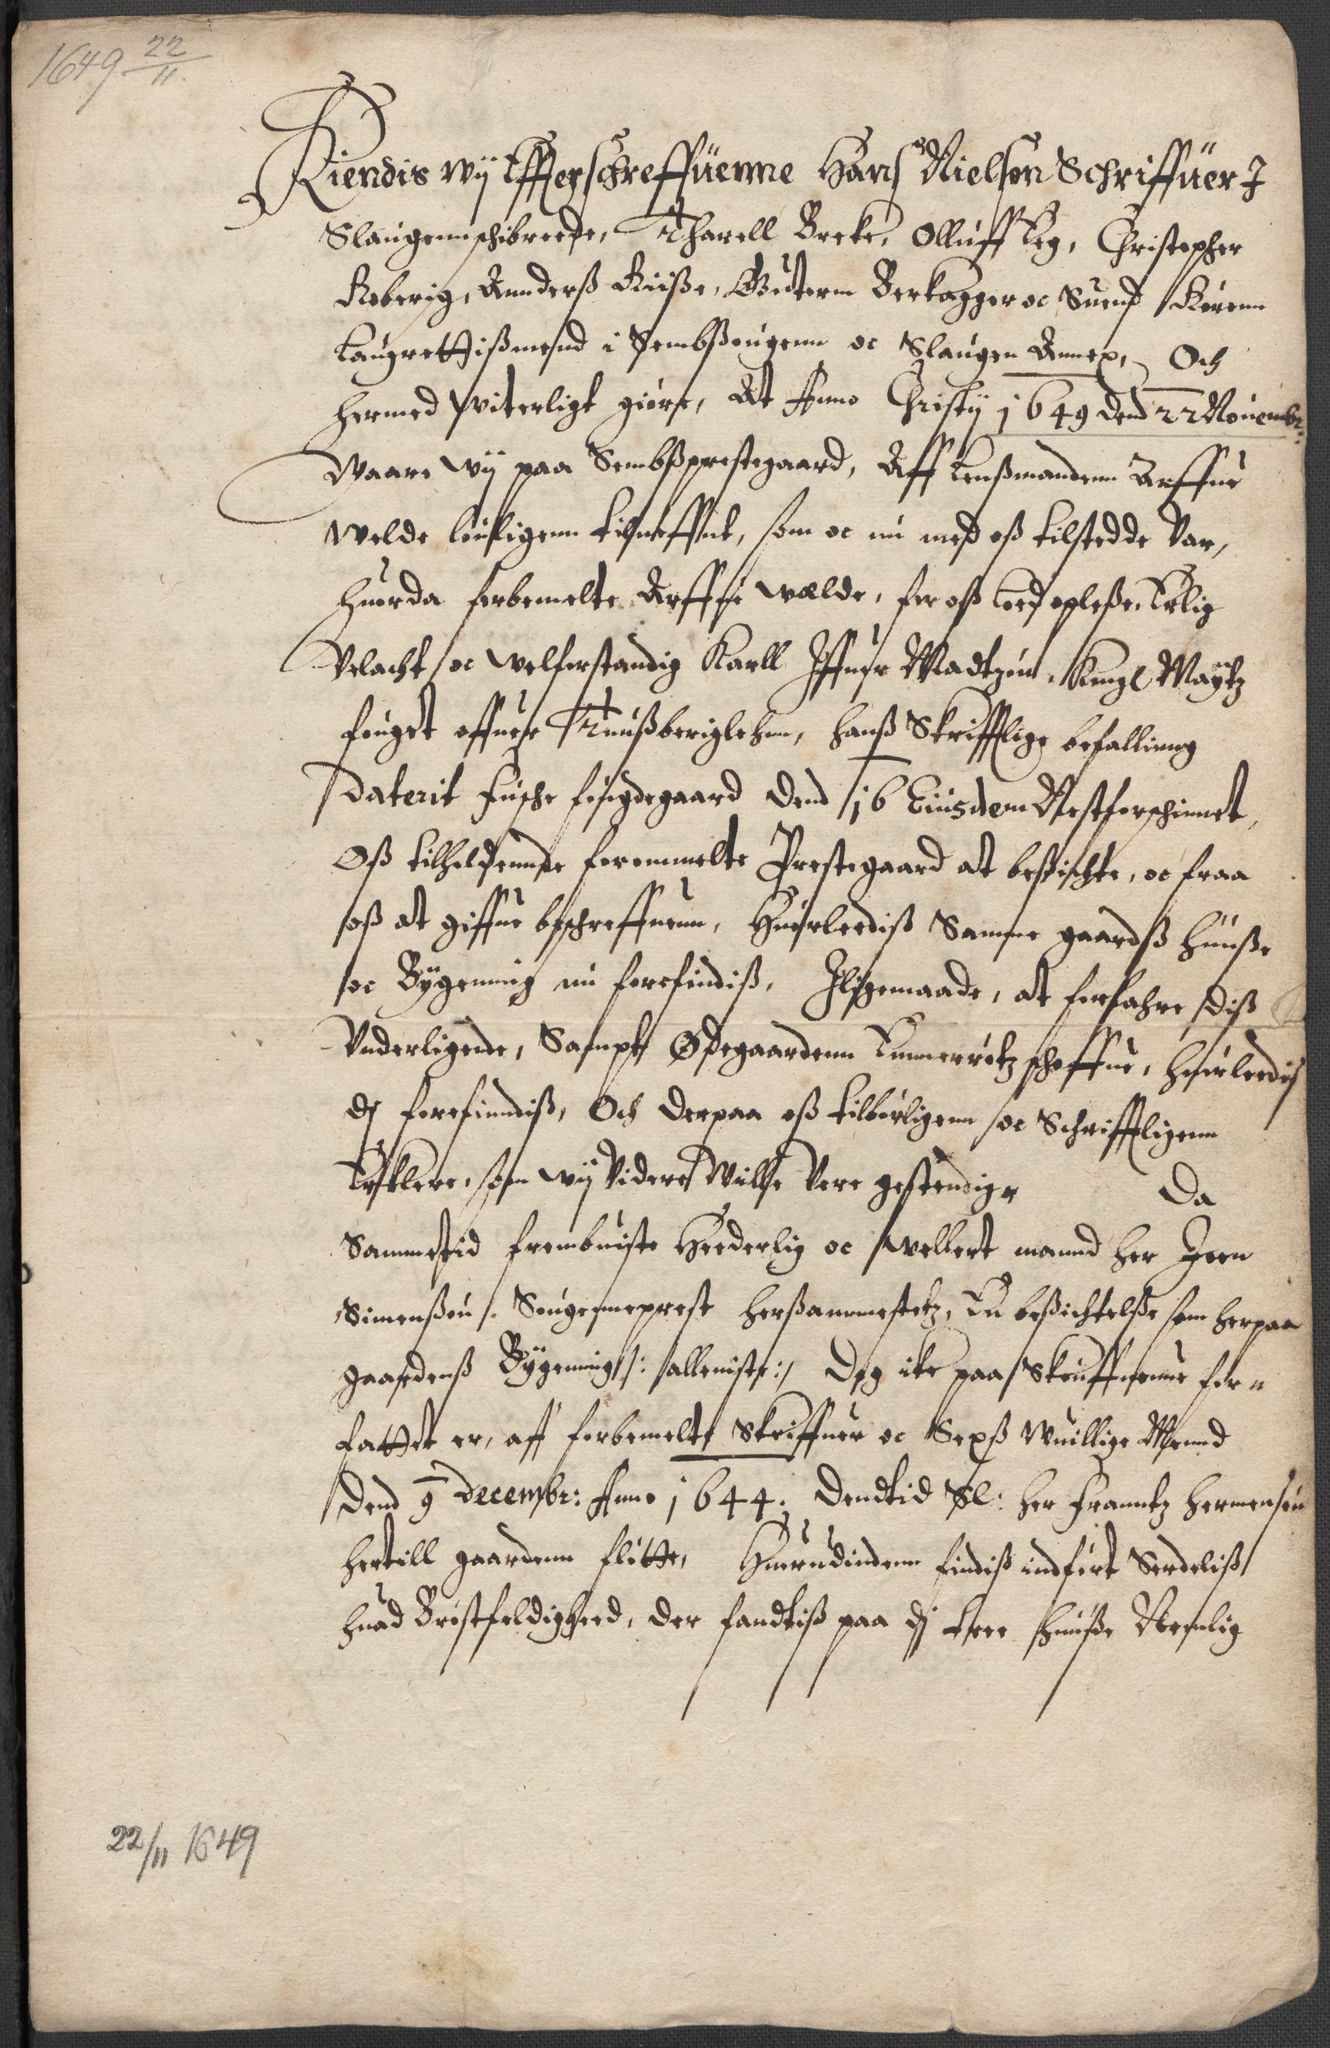 1649 22/11.
Kiendis wij Effterschreffuenne Hans Nielsen Schriffuer J
Slaugennschibrede, Tharell Breke, Olluff Leg, Christopher
Roberig, Annderß Kiiße, Gutorm Berkagger oc Suend
Laugrettißmend i Sembßougenn oc Slaugen Annex, Och
hermed witerligt giøre, At Anno Christij 1649 den 22 Nouembr:
Waare wij paa Sembßprestegaard, Aff Lenßmandenn Arffue
Welde louligenn tilneffnt, som oc nu med oß tilstedde var,
huorda forbemelte Arffue Wælde, for oß loed oplesse, Erlig
Velacht oc welforstandig Karll Iffuer Madtzøn, Kongl Maÿtz
fougit offuer Tunßberiglehn, hanß Skrifftlige befalling
Daterit fougdegaard Dend 16 Eiusdem Nestforschinnet,
Oß tilholdennde forommelte Prestegaard at besichte, oc fraa
oß at giffue beschreffuenn, Huorledis Samme gaardß Huuße
oc Bÿgening nu forefindiß, Jligemaade, at forfahre diß
Vnderligende, Sampt Ødegaardenn schoffue, huorledis
dj forefinndiß, Och derpaa oß tilbørligenn oc Schrifftligenn
Erklere, som wij Videre Wille Vere gestendige Da
Sammetid frembuiste Hederlig oc wellert mannd her Jenn
Simenßøn, Sougenneprest herßammestetz, En besichtelße som herpaa
gaardenß Bÿgening /: alleniste :/ Dog ike paa Skouffuenne for=
fattet er, aff forbemelte Skriffuer oc Sexß Wuillige Mennd
Dend 9 Decembr: Anno 1644. Dendtid Sl: her Franntz Hermensøn
hertill gaardenn flötte, Huorudindenn findiß indført Serdeliß
huad Brøstfeldigheed, der fandtiß paa dj tree huuße Nemlig
22/11 1649